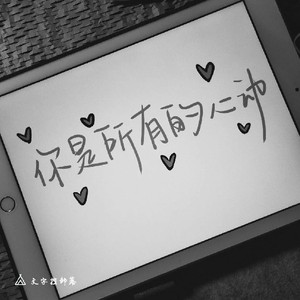 你是所有的心动
文字控部落